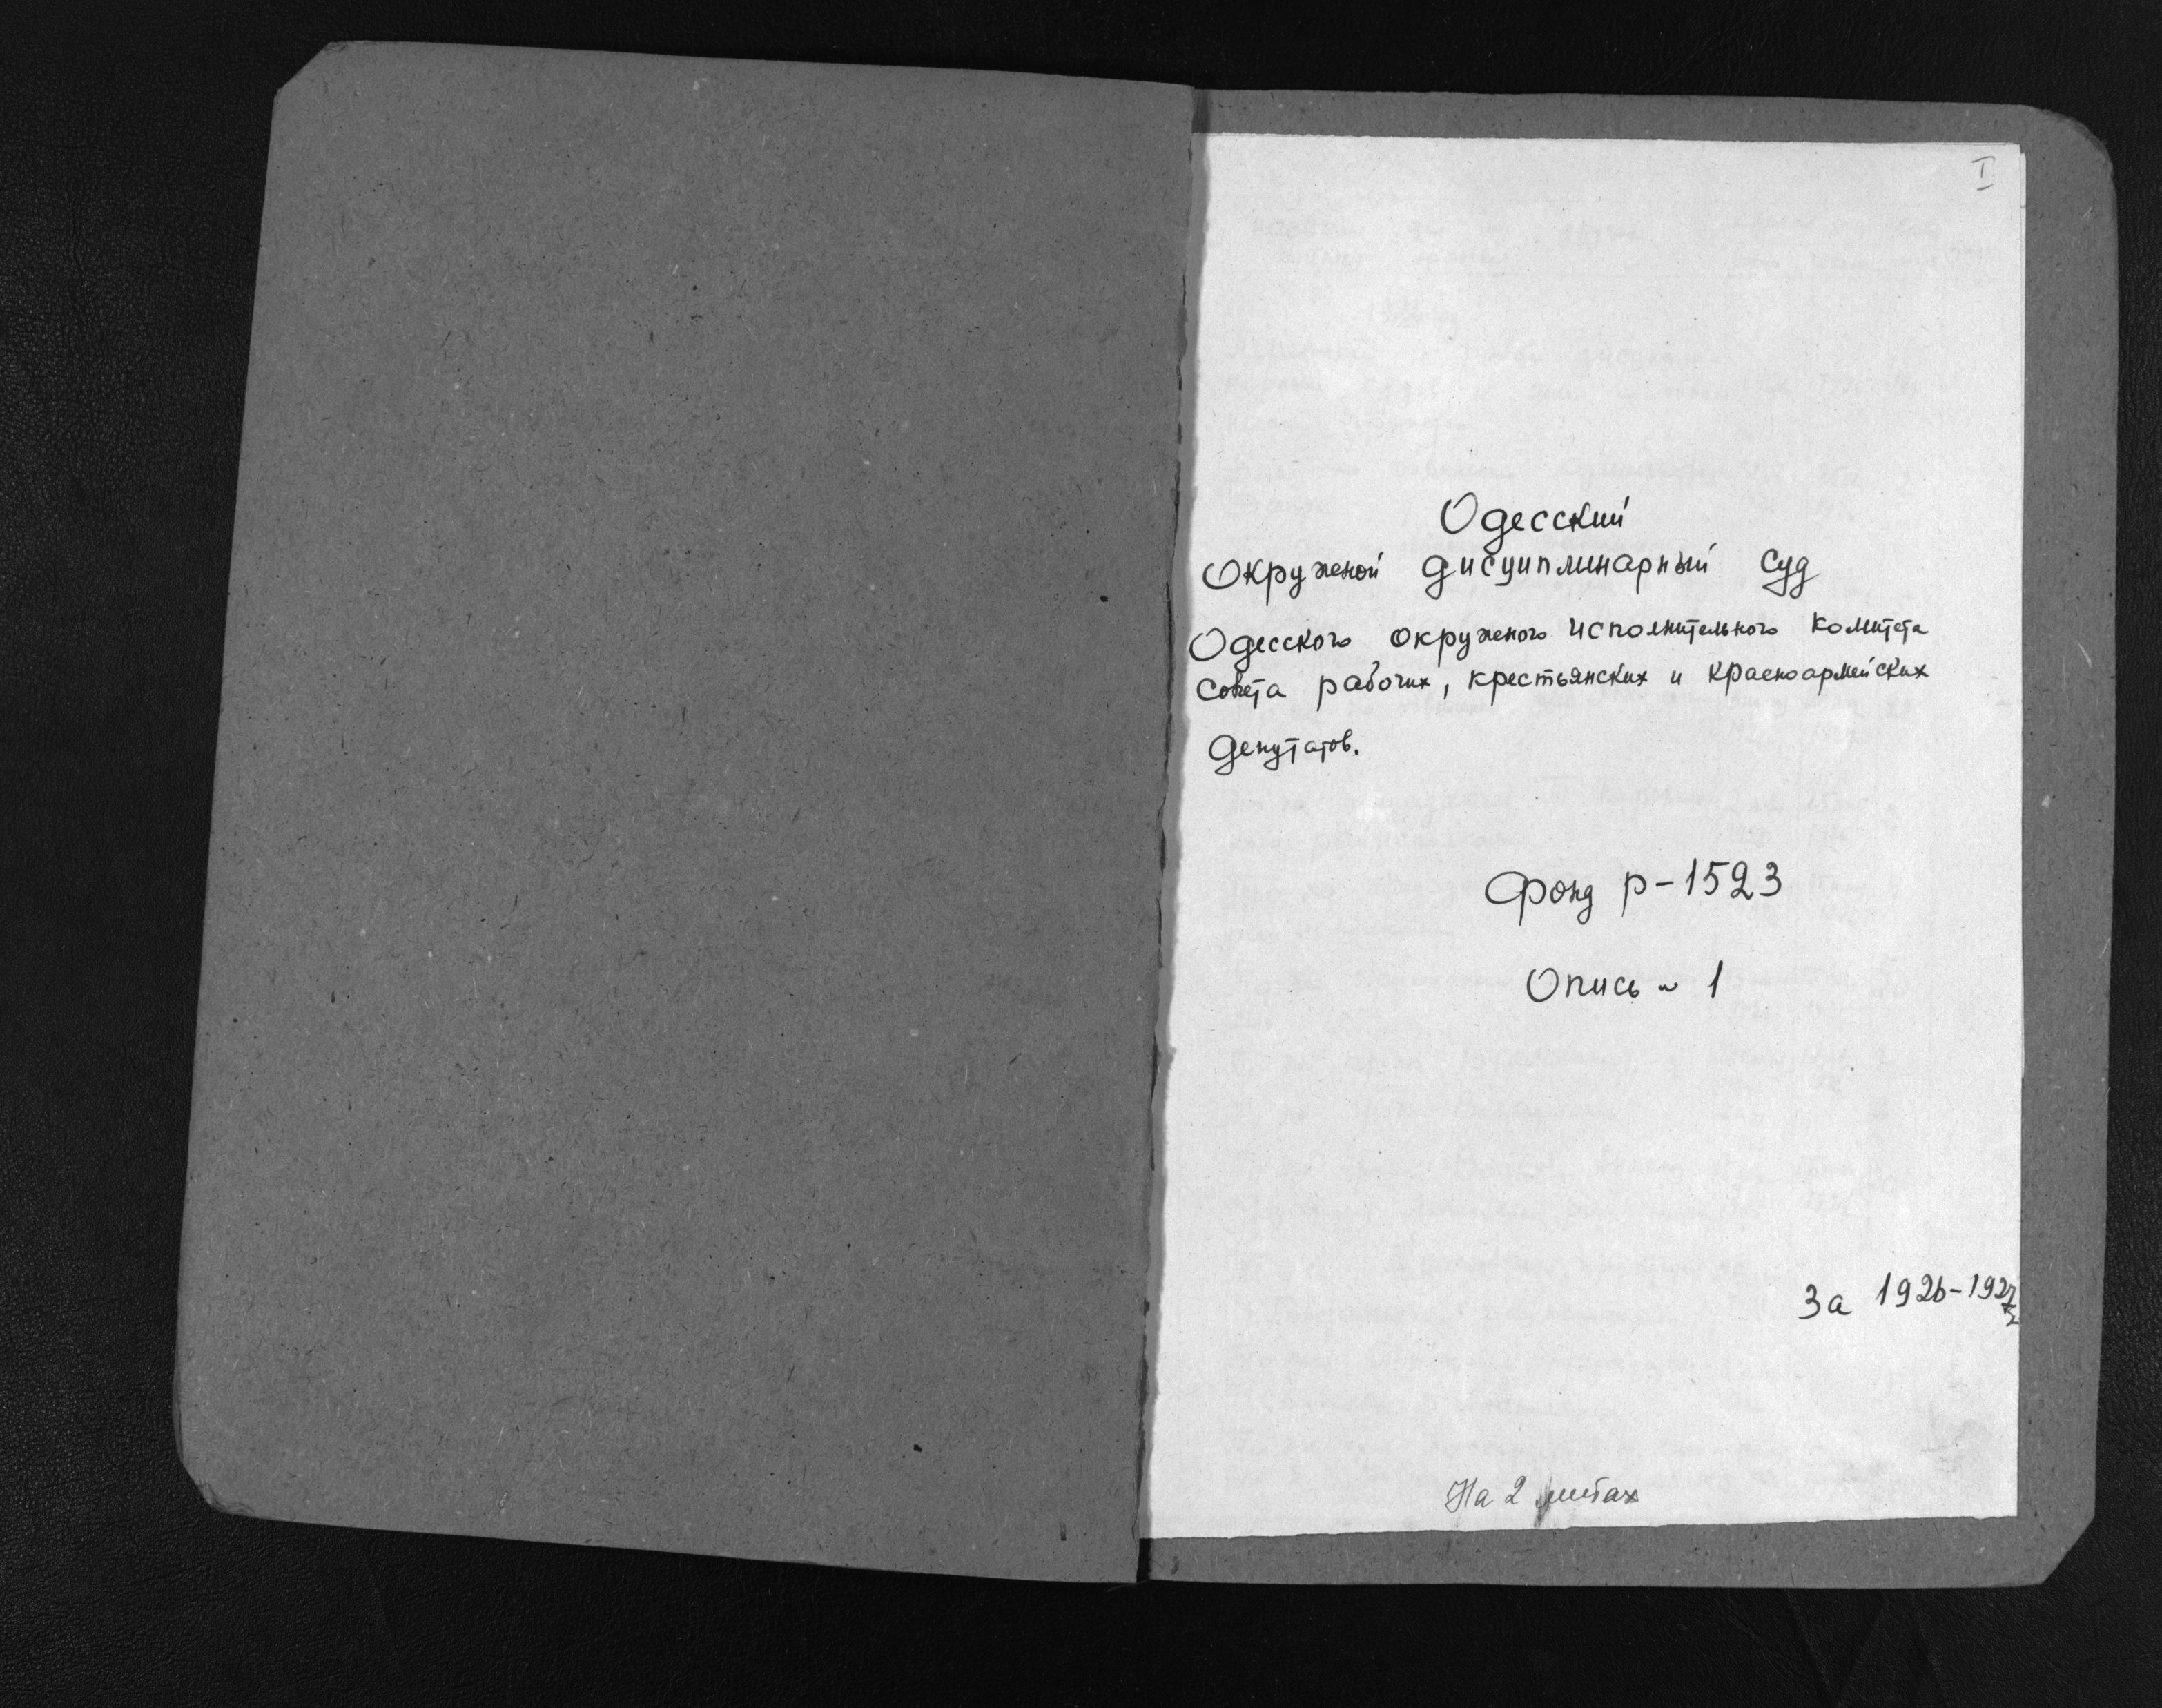 I
Одесский
Окружной дисциплинарный суд
Одесского окружного исполнительного комитета
совета рабочих, крестьянских и красноармейских
депутатов.
Фонд р-1523
Опись ~ 1
За 1926-1927
На 2 листах